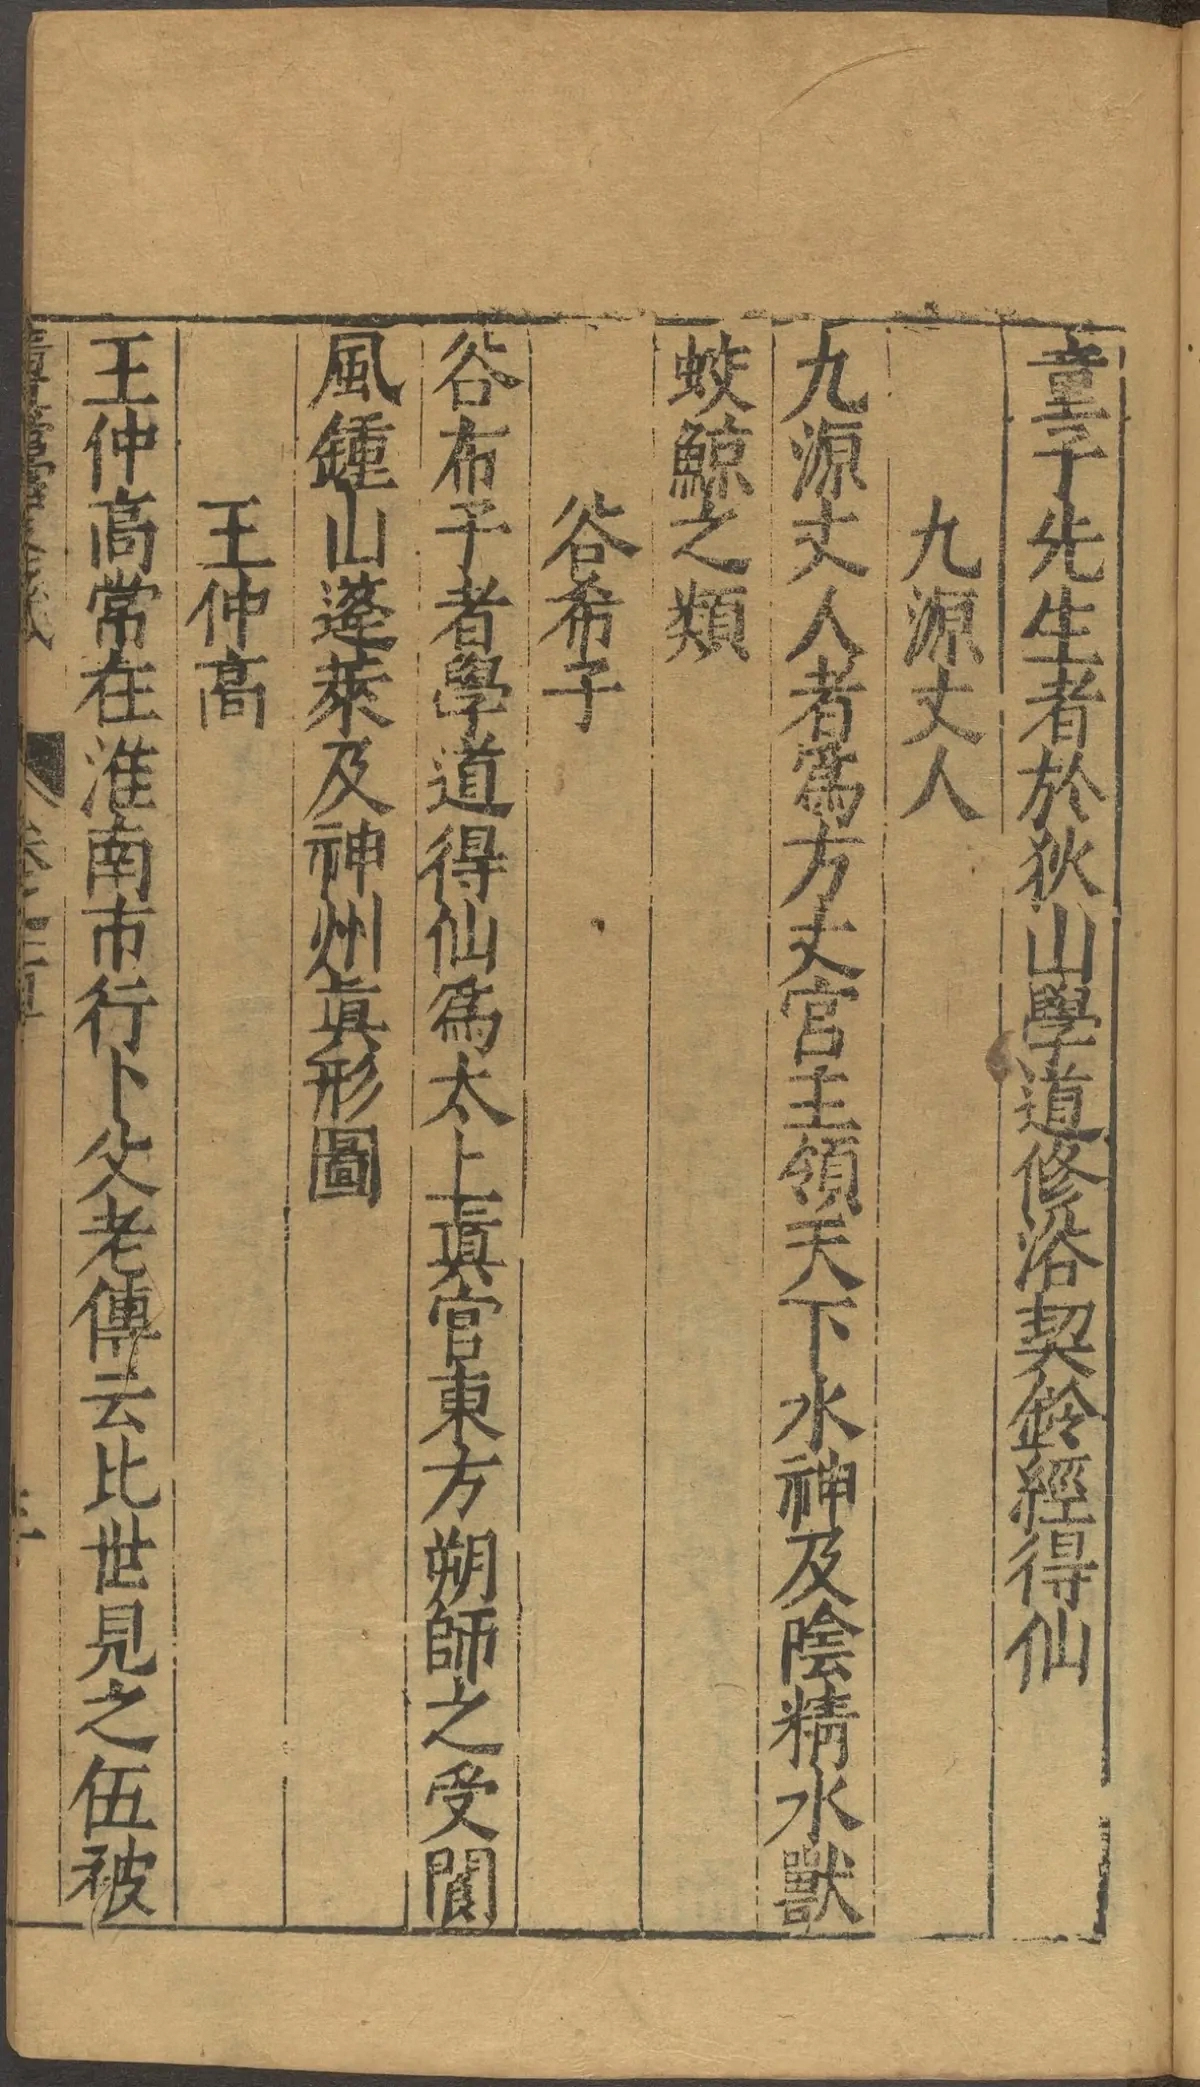 童子先生者於狄山學道修浴契鈴經得仙
九源丈人
九源丈人者爲方丈宮主領天下水神及陰精水獸
蛟鯨之類
谷希子
谷布子者學道得仙爲太上眞官東方朔師之受閬
風鍾山蓬萊及神州眞形圖
王仲高
王仲高常在淮南市行卜父老傳云比世見之伍被